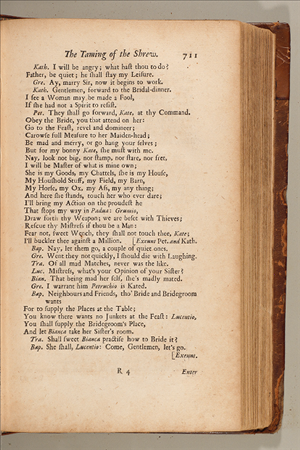 The Taming of the Shrew. 711
Kath. I will be angry; what hast thou to do?
Father, be quiet; he shall stay my Leisure.
Gre. Ay, marry Sir, now it begins to work.
Kath. Gentlemen, forward to the Bridal-dinner.
I see a Woman may be made a Fool,
If she had not a Spirit to resist.
Pet. They shall go forward, Kate, at thy Command.
Obey the Bride, you that attend on her:
Go to the Feast, revel and domineer;
Carowse full Measure to her Maiden-head;
Be mad and merry, or go hang your selves;
But for my bonny Kate, she must with me.
Nay, look not big, nor stamp, nor stare, nor fret,
I will be Master of what is mine own;
She is my Goods, my Chattels, she is my House,
My Houshold Stuff, my Field, my Barn,
My Horse, my Ox, my Ass, my any thing;
And here she stands, touch her who ever dare;
I'll bring my Action on the proudest he
That stops my way in Padua: Grumio,
Draw forth thy Weapon; we are beset with Thieves;
Rescue thy Mistress if thou be a Man:
Fear not, sweet Wench, they shall not touch thee, Kate;
I'll buckler thee against a Million. [Exeunt Pet. and Kath.
Bap. Nay, let them go, a couple of quiet ones.
Gre. Went they not quickly, I should die with Laughing.
Tra. Of all mad Matches, never was the like.
Luc. Mistress, what's your Opinion of your Sister?
Bian. That being mad her self, she's madly mated.
Gre. I warrant him Petruchio is Kated.
Bap. Neighbours and Friends, tho' Bride and Bridegroom
wants
For to supply the Places at the Table;
You know there wants no Junkets at the Feast: Lucentio,
You shall supply the Bridegroom's Place,
And let Bianca take her Sister's room.
Tra. Shall sweet Bianca practise how to Bride it?
Bap. She shall, Lucentio: Come, Gentlemen, let's go.
[Exeunt.
R 4 Enter